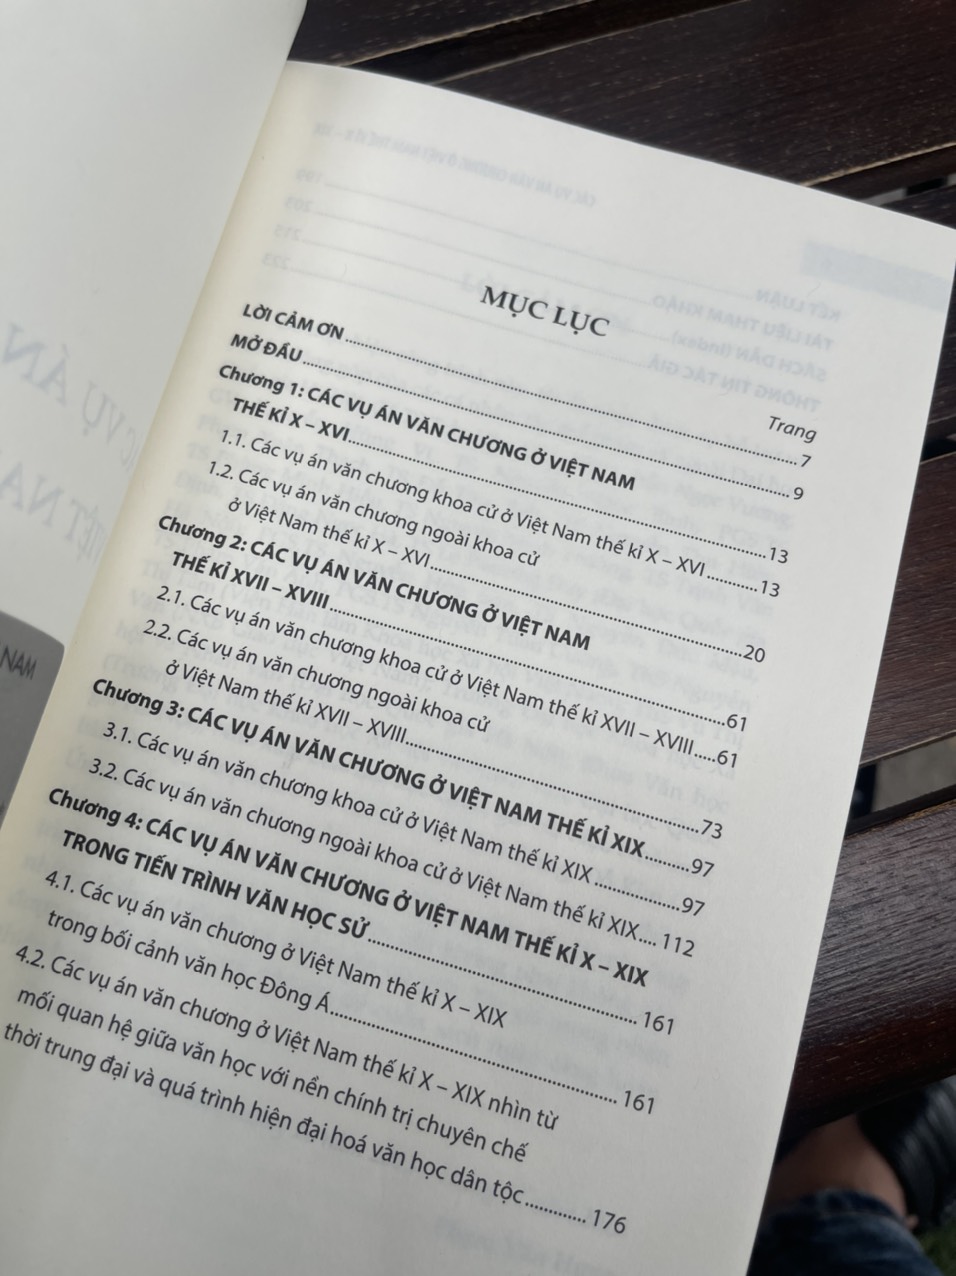 MỤC LỤC
Trang
LỜI CẢM ƠN..........7
MỞ ĐẦU..........9
Chương 1: CÁC VỤ ÁN VĂN CHƯƠNG Ở VIỆT NAM
THẾ KỈ X – XVI..........13
1.1. Các vụ án văn chương khoa cử ở Việt Nam thế kỉ X – XVI..........13
1.2. Các vụ án văn chương ngoài khoa cử
ở Việt Nam thế kỉ X – XVI..........20
Chương 2: CÁC VỤ ÁN VĂN CHƯƠNG Ở VIỆT NAM
THẾ KỈ XVII – XVIII..........61
2.1. Các vụ án văn chương khoa cử ở Việt Nam thế kỉ XVII – XVIII....61
2.2. Các vụ án văn chương ngoài khoa cử
ở Việt Nam thế kỉ XVII – XVIII..........73
Chương 3: CÁC VỤ ÁN VĂN CHƯƠNG Ở VIỆT NAM THẾ KỈ XIX.........97
3.1. Các vụ án văn chương khoa cử ở Việt Nam thế kỉ XIX ..........97
3.2. Các vụ án văn chương ngoài khoa cử ở Việt Nam thế kỉ XIX.... 112
Chương 4: CÁC VỤ ÁN VĂN CHƯƠNG Ở VIỆT NAM THẾ KỈ X – XIX
TRONG TIẾN TRÌNH VĂN HỌC SỬ..........161
4.1. Các vụ án văn chương ở Việt Nam thế kỉ X – XIX
trong bối cảnh văn học Đông Á..........161
4.2. Các vụ án văn chương ở Việt Nam thế kỉ X – XIX nhìn từ
mối quan hệ giữa văn học với nền chính trị chuyên chế
thời trung đại và quá trình hiện đại hoá văn học dân tộc............ 176
NAM